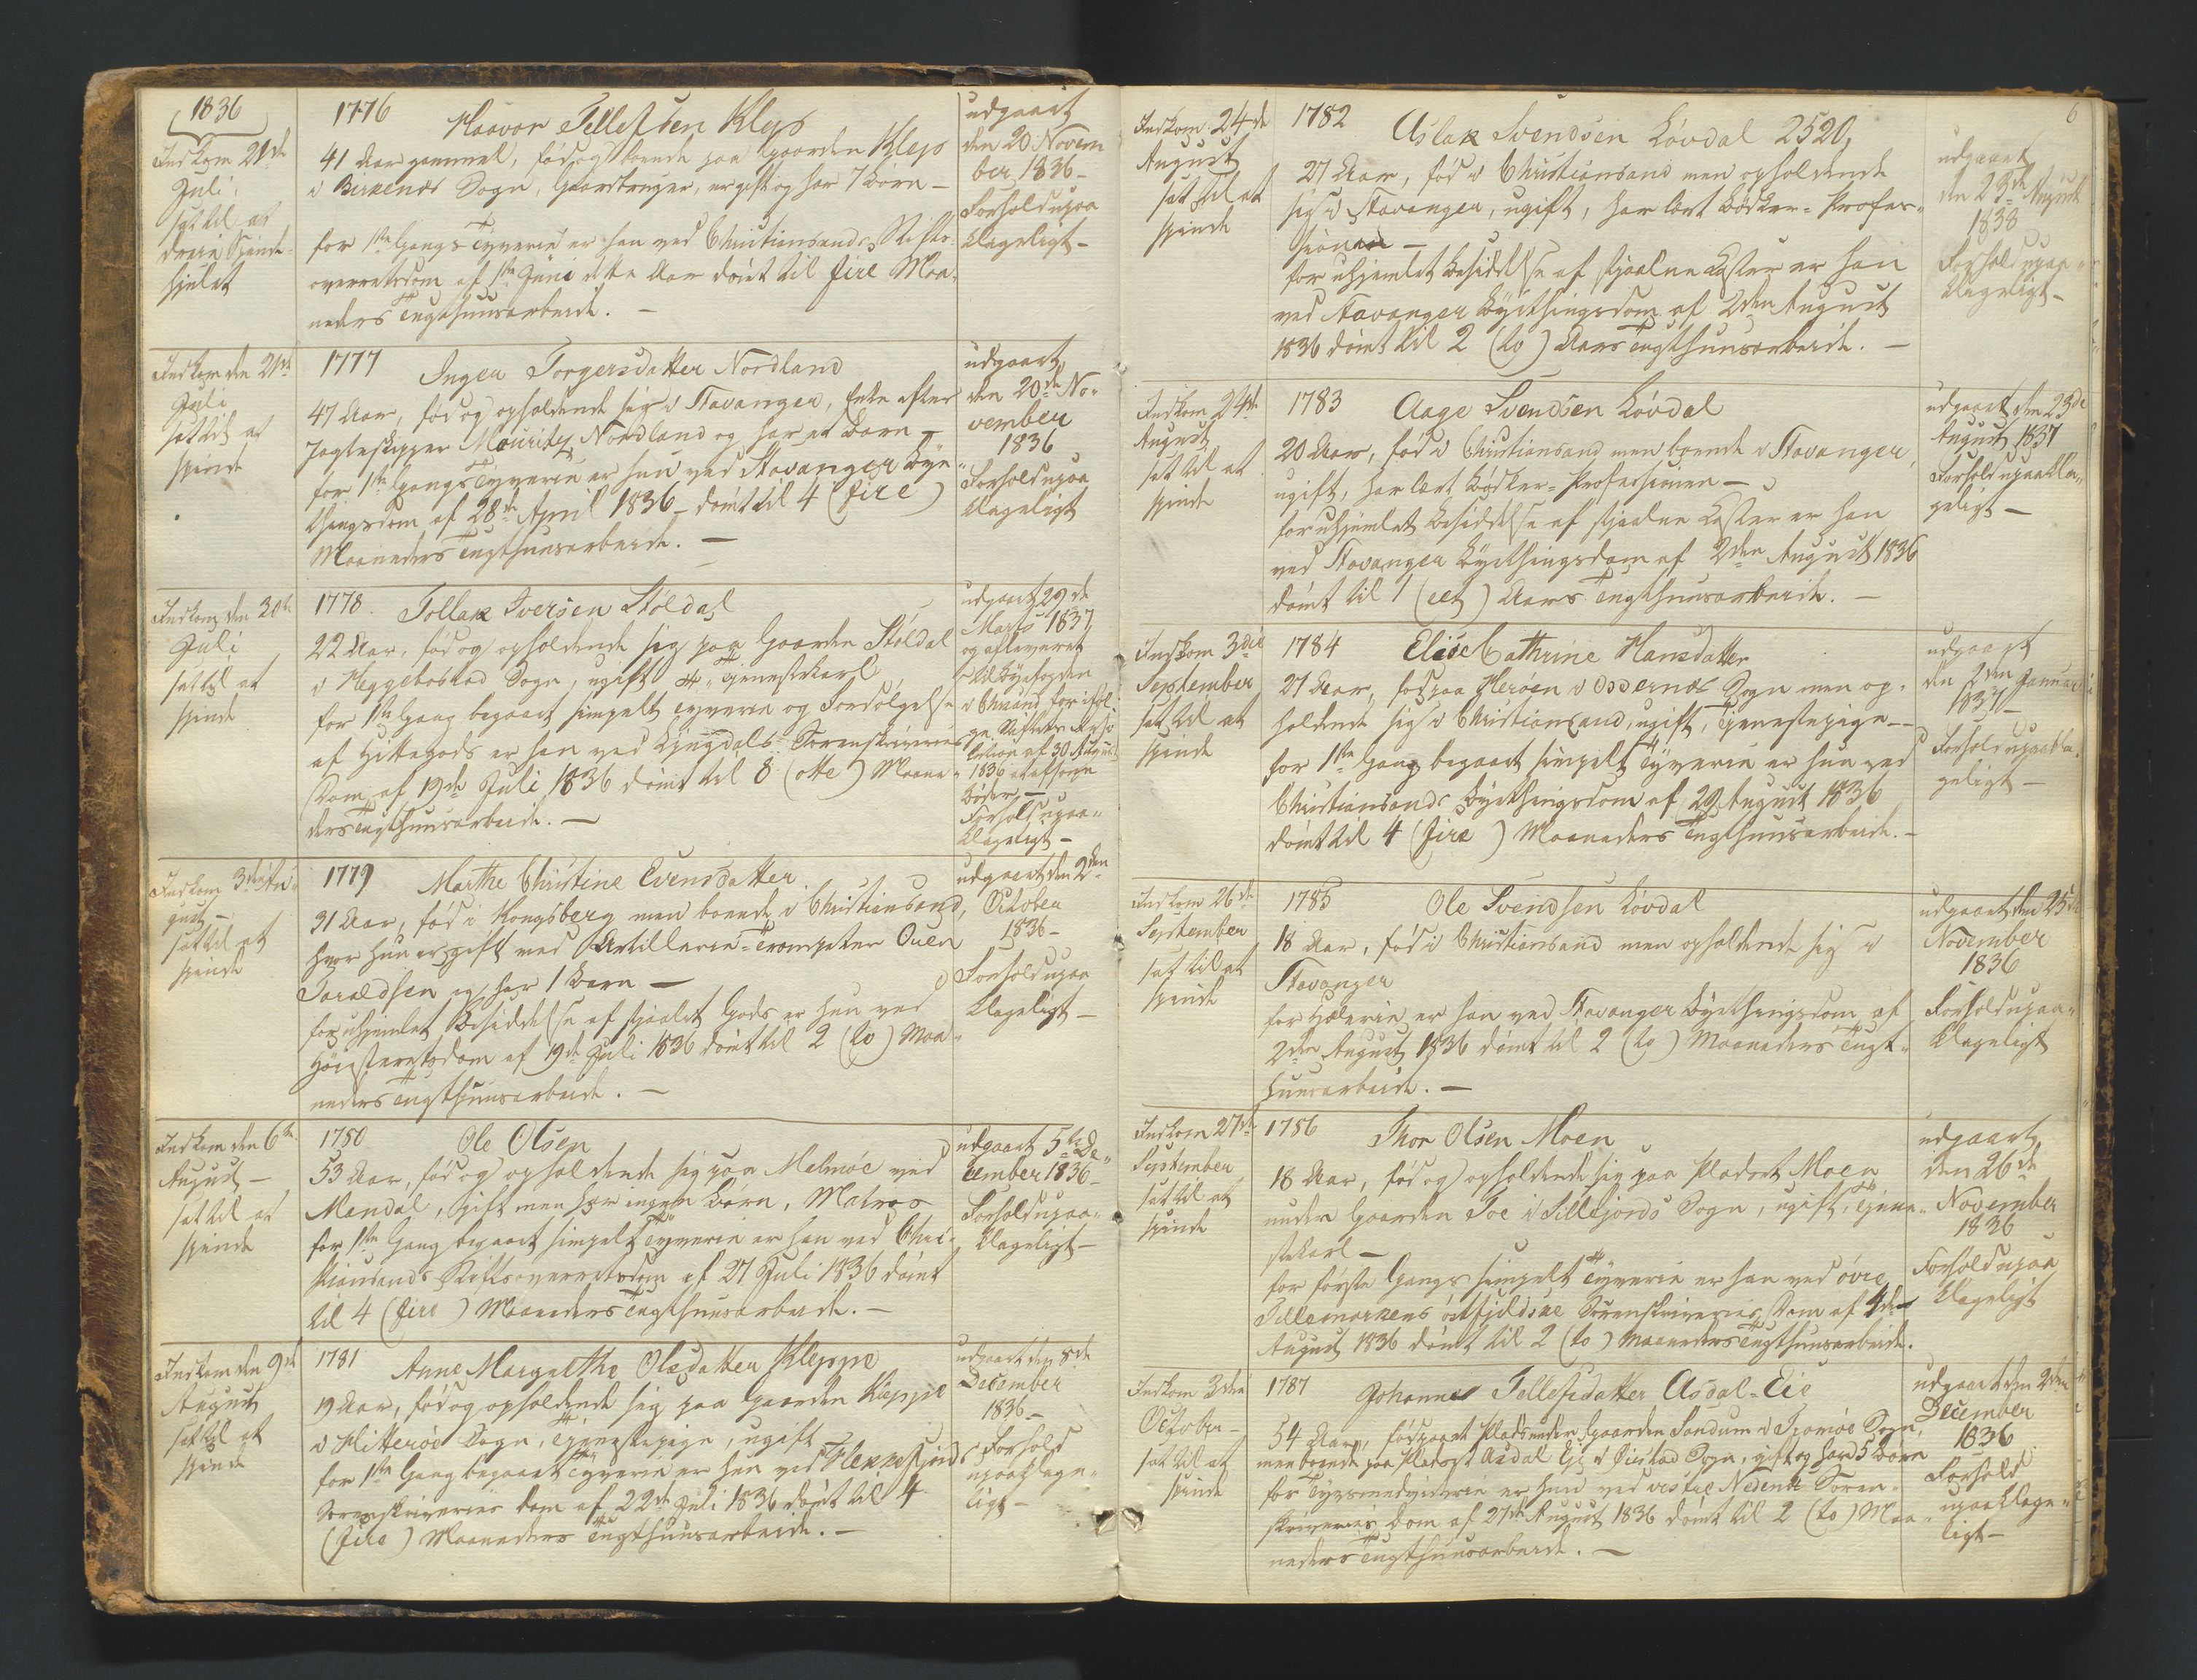 1836
Indkom 21de
Juli
sat til at
dreie Spinde-
hjulet
1776
Haavor Tellefsen Kleps
41 Aar gammel, fød og boende paa Gaarden Kleps
i Birkenæs Sogn, Gaardbruger, er gift og har 7 Børn –
for 1ste Gangs Tyverie er han ved Christiansands Stifts-
overretsdom af 1ste Juni dette Aar dømt til fire Maa-
neders Tugthuusarbeide. –
udgaaet
den 20 Novem
ber 1836 –
Forhold upaa
klageligt –
Indkom den 21de
Juli
sat til at
spinde
1777
Inger Torgersdatter Nordland
47 Aar, fød og opholdende sig i Stavanger, Enke efter
Jagteskipper Mauritz Nordland og har et Barn –
for 1ste Gangs Tyverie er hun ved Stavanger Bye-
thingsdom af 28de April 1836 – dømt til 4 (fire)
Maaneders Tugthuusarbeide. –
udgaaet
den 20de No-
vember
1836
Forhold upaa
klageligt
Indkom den 30te
Juli
sat til at
spinde
1778
Tollak Iversen Støldal
22 Aar, fød og opholdende sig paa Gaarden Støldal
i Heggebostad Sogn, ugift Tjenestekarl
for 1ste Gang begaaet simpelt Tyverie og Fordølgelse
af Hittegods er han ved Lyngdals Sorenskriveries
Dom af 19de Juli 1836 dømt til 8 (otte) Maane-
ders Tugthuusarbeide. –
udgaaet 29de
Marts 1837
og afleveret
til Byefogden
i Chrsand for iføl-
ge Stiftets Reso
lution af 30 August
1836 at afsone
Bøder –
Forhold upaa-
klageligt –
Indkom 3die Au-
gust –
sat til at
spinde
1779
Marthe Christine Evensdatter
31 Aar, fød i Kongsberg men boende i Christiansand,
hvor hun er gift med Artillerie-Trompeter Ouen
Taraldsen og har 1 Barn –
for uhjemlet Besiddelse af stjaalet Gods er hun ved
Høiesteretsdom af 19de Juli 1836 dømt til 2 (to) Maa-
neders Tugthuusarbeide. –
udgaaet den 2den
October
1836 –
Forhold upaa
klageligt –
Indkom den 6te
August –
sat til at
spinde
1780
Ole Olsen
53 Aar, fød og opholdende sig paa Malmøe ved
Mandal, gift men har ingen Børn, Matros
for 1ste Gang begaaet simpelt Tyverie er han ved Chri-
stiansands Stiftsoverretsdom af 27 Juli 1836 dømt
til 4 (fire) Maaneders Tugthuusarbeide. –
udgaaet 5te De-
cember 1836 –
Forhold upaa-
klageligt –
Indkom den 9de
August
sat til at
spinde
1781
Anne Margrethe Olsdatter Kleppe
19 Aar, fød og opholdende sig paa Gaarden Kleppe
i Hitterøe Sogn, Tjenestepige, ugift
for 1ste Gang begaaet Tyverie er hun ved Flekkefjords
Sorenskriveries Dom af 22de Juli 1836 dømt til 4
(fire) Maaneders Tugthuusarbeide. –
udgaaet den 8de
December
1836 –
Forhold
upaaklage-
ligt –
6
Indkom 24de
August
sat til at
spinde
1782
Aslak Svendsen Løvdal 2520,
27 Aar, fød i Christiansand men opholdende
sig i Stavanger, ugift, har lært Bødker-Profes-
sionen –
for uhjemlet Besiddelse af stjaalne Koster er han
ved Stavanger Byethingsdom af 2den August
1836 dømt til 2 (to) Aars Tugthuusarbeide. –
udgaaet
den 23de August
1838
Forhold upaa-
klageligt –
Indkom 24de
August
sat til at
spinde
1783
Aage Svendsen Løvdal
20 Aar, fød i Christiansand men boende i Stavanger,
ugift, har lært Bødker-Professionen –
for uhjemlet Besiddelse af stjaalne Koster er han
ved Stavanger Byethingsdom af 2den August 1836
dømt til 1 (eet) Aars Tugthuusarbeide. –
udgaaet den 23de
August 1837
Forhold upaakla-
geligt –
Indkom 3die
September
sat til at
spinde
1784
Elise Cathrine Hansdatter
27 Aar, fød paa Herøen i Oddernæs Sogn men op-
holdende sig i Christiansand, ugift, Tjenestepige –
for 1ste Gang begaaet simpelt Tyverie er hun ved
Christiansands Byethingsdom af 29 August 1836
dømt til 4 (fire) Maaneders Tugthuusarbeide. –
udgaaet
den 2den Januar
1837 –
Forhold upaakla-
geligt –
Indkom 26de
September
sat til at
spinde
1785
Ole Svendsen Løvdal
18 Aar, fød i Christiansand men opholdende sig i
Stavanger
for Hæleri er han ved Stavanger Byethingsdom af
2den August 1836 dømt til 2 (to) Maaneders Tugt-
huusarbeide. –
udgaaet den 25de
November
1836
Forhold upaa-
klageligt
Indkom 27de
September
sat til at
spinde
1786
Thor Olsen Moen
18 Aar, fød og opholdende sig paa Pladset Moen
under Gaarden Foe i Sillejords Sogn, ugift, Tjene-
stekarl –
for første Gangs simpelt Tyverie er han ved øvre
Tellemarkens østfjeldske Sorenskriveries Dom af 4de
August 1836 dømt til 2 (to) Maaneders Tugthuusarbeide.
udgaaet
den 26de
November
1836
Forhold upaa
klageligt
Indkom 3die
October –
sat til at
spinde
1787
Johanne Tellefsdatter Asdal-Eie
54 Aar, fød paa et Plads under Gaarden Sandum i Tromøe Sogn,
men boende paa Pladset Asdal Eje i Øiestad Sogn, gift og har 5 Børn
for Tyvsmedviderie er hun ved vestre Nedenæs Soren-
skriveries Dom af 27de August 1836 dømt til 2 (to) Maa-
neders Tugthuusarbeide. –
udgaaet den 2den
December
1836
Forhold
upaaklage-
ligt –